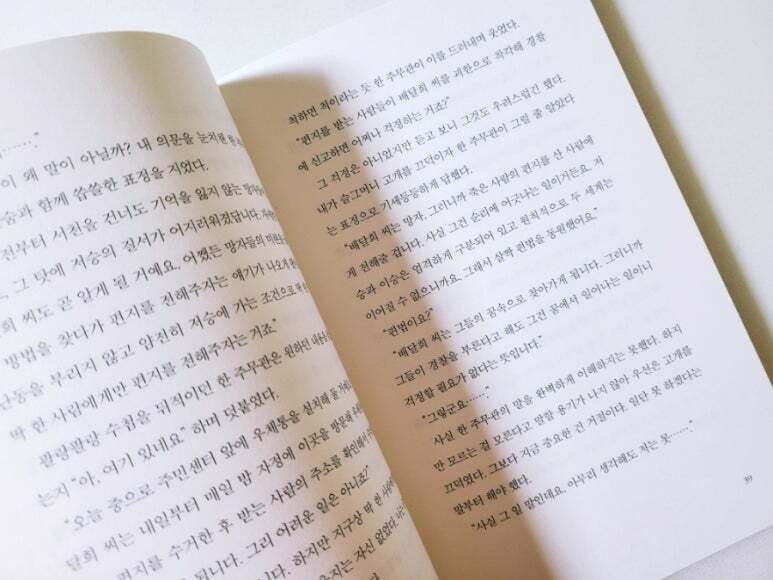 ……."
이 왜 말이 아닐까? 내 의문을 눈치챈 한
승과 함께 씁쓸한 표정을 지었다.
전부터 서천을 건너도 기억을 잃지 않는 망자
, 그 탓에 저승의 질서가 어지러워졌답니다.
희 씨도 곧 알게 될 거예요. 어쨌든 망자들의
방법을 찾다가 편지를 전해주자는 얘기가 나오게
난동을 부리지 않고 얌전히 저승에 가는 조건으로
딱 한 사람에게만 편지를 전해주자는 거죠."
팔랑팔랑 수첩을 뒤적이던 한 주무관은 원하던
는지 "아, 여기 있네요." 하며 덧붙였다.
"오늘 중으로 주민센터 앞에 우체통을 설치해
달희 씨는 내일부터 매일 밤 자정에 이곳을 방문해
편지를 수거한 후 받는 사람의 주소를 확인해서
됩니다. 그리 어려운 일은 아니죠?"
니다. 하지만 지구상 딱 한 사람에
지는 자신 없었다.
척하면 척이라는 듯 한 주무관이 이를 드러내며 웃었다.
"편지를 받는 사람들이 배달희 씨를 괴한으로 착각해 경찰
에 신고하면 어쩌나 걱정하는 거죠?"
그 걱정은 아니었지만 듣고 보니 그것도 우려스럽긴 했다.
내가 슬그머니 고개를 끄덕이자 한 주무관이 그럴 줄 알았다
는 표정으로 기세등등하게 답했다.
"배달희 씨는 망자, 그러니까 죽은 사람의 편지를 산 사람에
게 전해줄 겁니다. 사실 그건 순리에 어긋나는 일이거든요. 저
승과 이승은 엄격하게 구분되어 있고 원칙적으로 두 세계는
이어질 수 없으니까요. 그래서 살짝 편법을 동원했어요."
"편법이요?"
"배달희 씨는 그들의 꿈속으로 찾아가게 됩니다. 그러니까
그들이 경찰을 부른다고 해도 그건 꿈에서 일어나는 일이니
걱정할 필요가 없다는 뜻입니다."
"그렇군요……."
사실 한 주무관의 말을 완벽하게 이해하지는 못했다. 하지
만 모르는 걸 모른다고 말할 용기가 나지 않아 우선은 고개를
끄덕였다. 그보다 지금 중요한 건 거절이다. 일단 못 하겠다는
말부터 해야 했다.
"사실 그 일 말인데요. 아무리 생각해도 저는 못……."